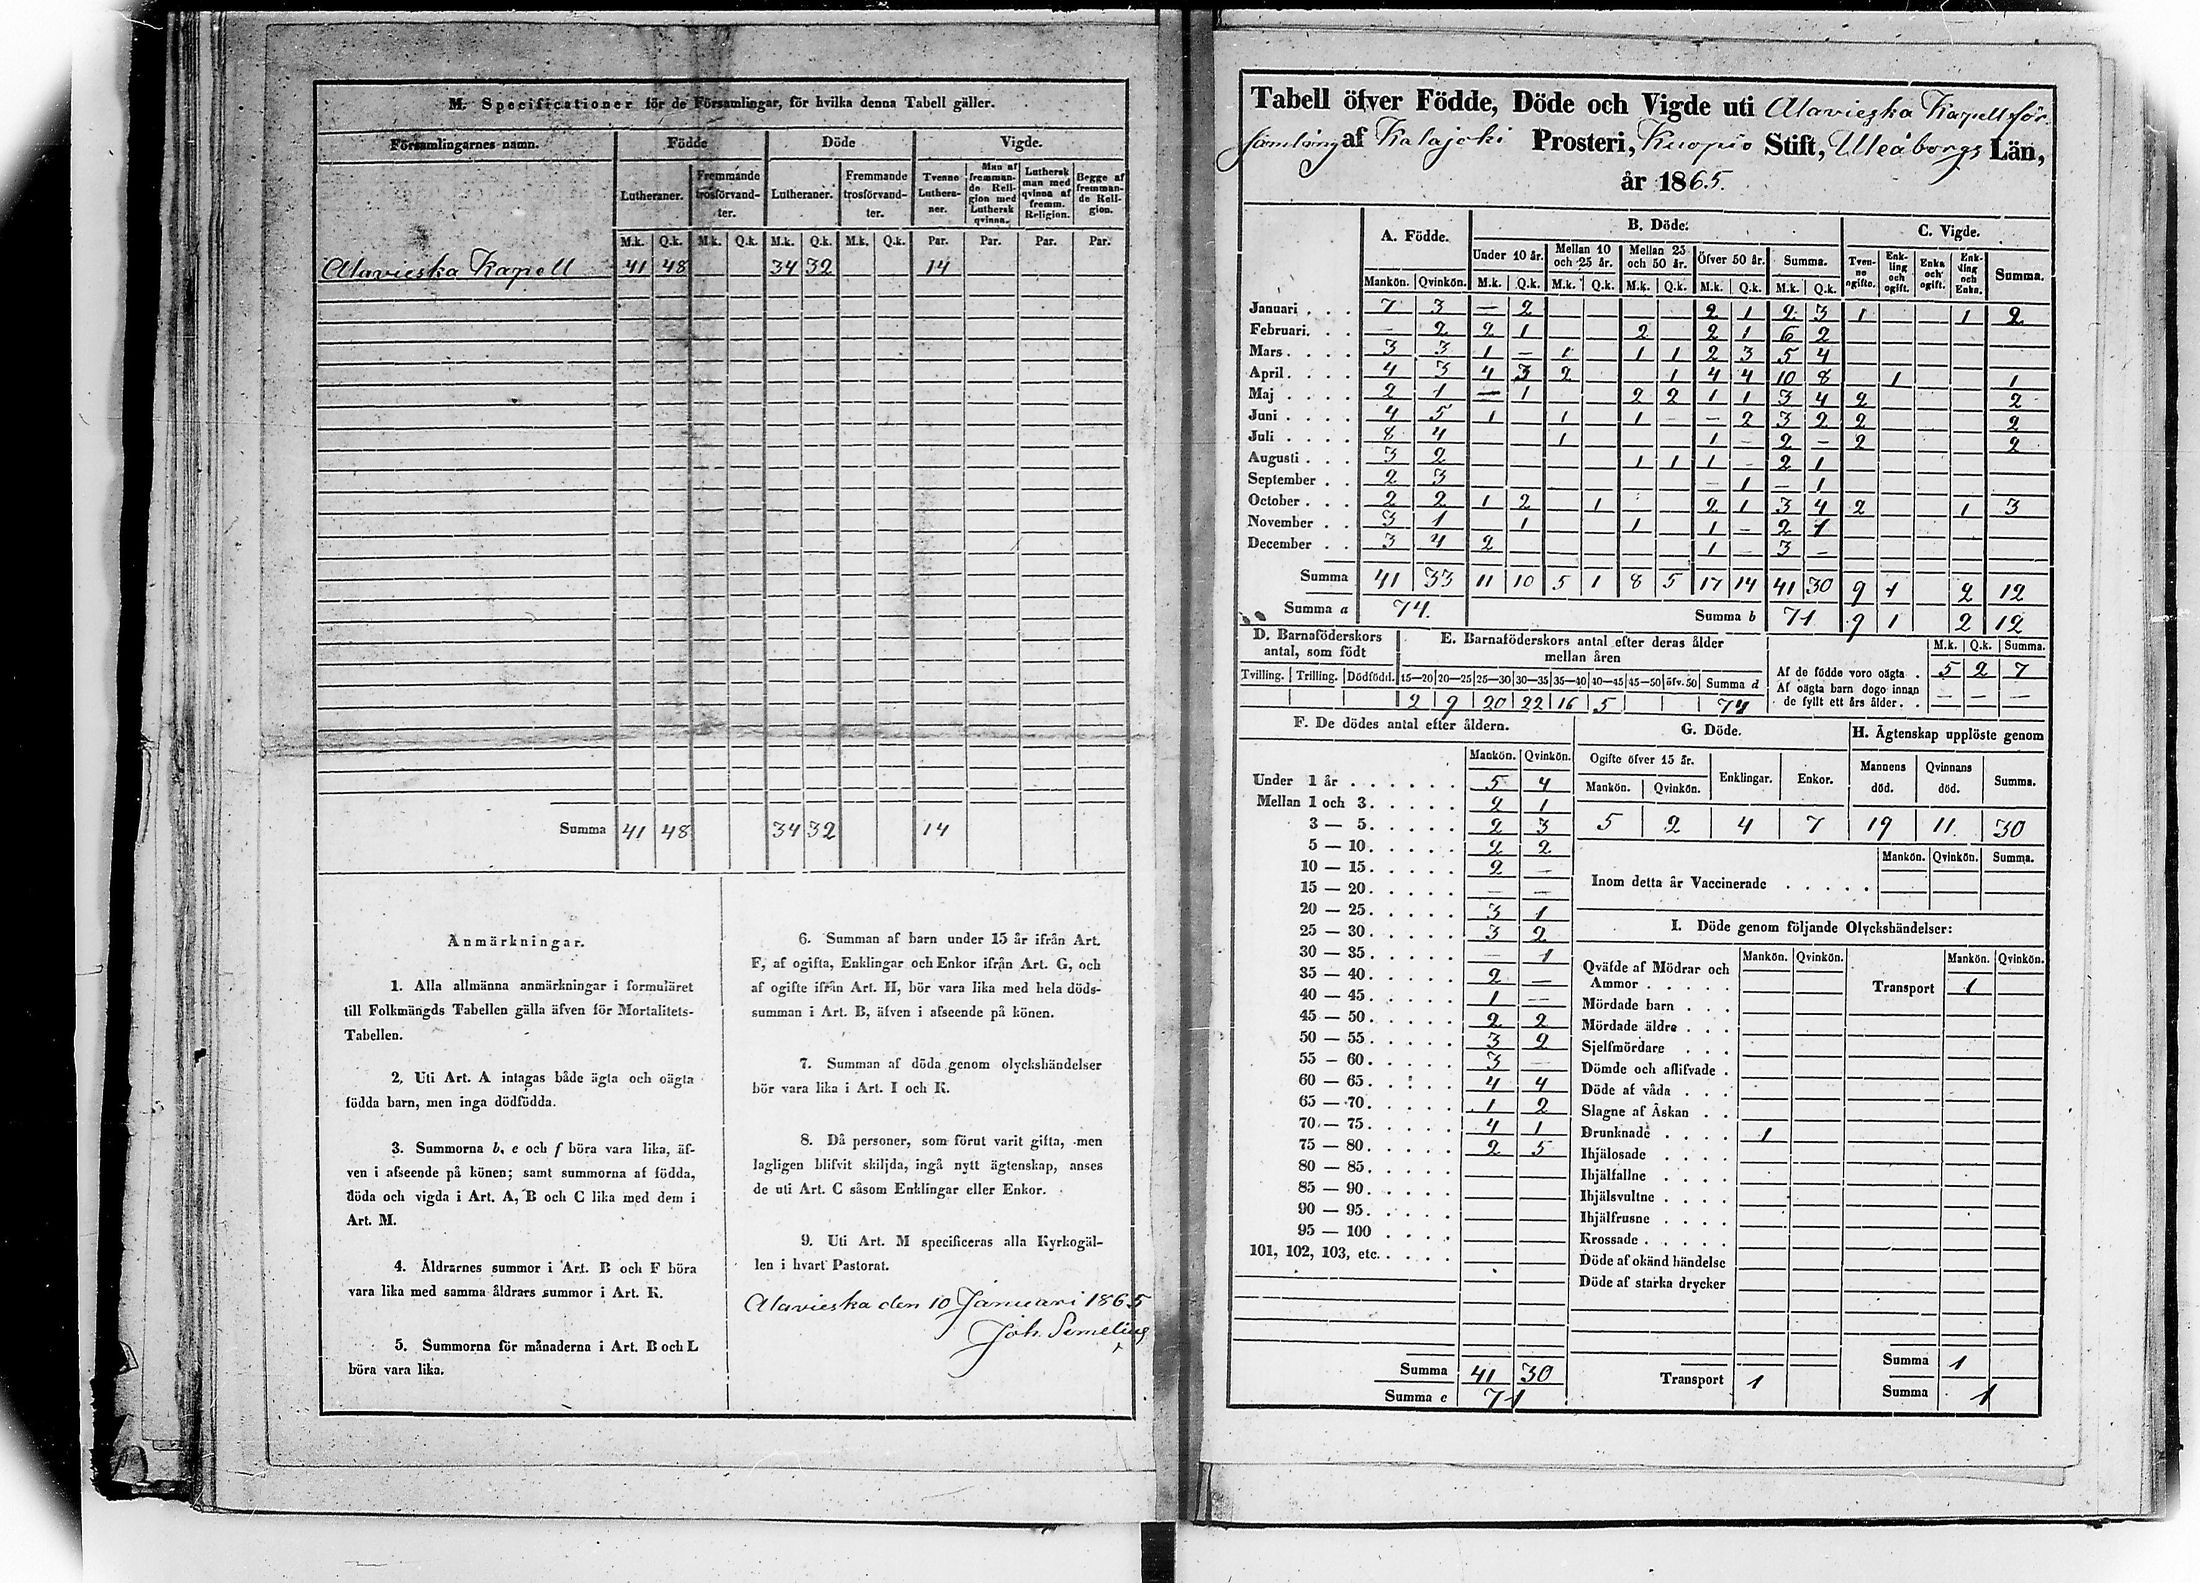 M. Specificationer för de Församlingar, för hvilka denna Tabell gäller.
Församlingarnes namn. Födde Döde Vigde.
Lutheraner. Fremmande trosförvandter. Lutheraner. Fremmande trosförvandter. Tvenne Lutheraner. Man af fremmande Religion med Luthersk qvinna. Luthersk man med qvinna af fremm. Religion. Begge af fremmande Religion.
M.k. Q.k. M.k. Q.k. M.k. Q.k. M.k. Q.k. Par. Par. Par. Par.
Alavieska Kapell 41 48 34 32 14
Summa 41 48 34 32 14
Anmärkningar.
1. Alla allmänna anmärkningar i formuläret
till Folkmängds Tabellen gälla äfven för Mortalitets-
Tabellen.
2. Uti Art. A intagas både ägta och oägta
födda barn, men inga dödfödda.
3. Summorna b, e och f böra vara lika, äf-
ven i afseende på könen; samt summorna af födda,
döda och vigda i Art. A, B och C lika med dem i
Art. M.
4. Åldrarnes summor i Art. B och F böra
vara lika med samma åldrars summor i Art. K.
5. Summorna för månaderna i Art. B och L
böra vara lika.
6. Summan af barn under 15 år ifrån Art.
F, af ogifta, Enklingar och Enkor ifrån Art. G, och
af ogifte ifrån Art. H, bör vara lika med hela döds-
summan i Art. B, äfven i afseende på könen.
7. Summan af döda genom olyckshändelser
bör vara lika i Art. I och K.
8. Då personer, som förut varit gifta, men
lagligen blifvit skiljda, ingå nytt ägtenskap, anses
de uti Art. C såsom Enklingar eller Enkor.
9. Uti Art. M specificeras alla Kyrkogäl-
len i hvart Pastorat.
Alavieska den 10 Januari 1865
Joh. Simelius
Tabell öfver Födde, Döde och Vigde uti Alavieska Kapellför-
samling af Kalajoki Prosteri, Kuopio Stift, Uleåborgs Län,
år 1865.
A. Födde. B. Döde. C. Vigde.
Under 10 år. Mellan 10 och 25 år. Mellan 25 och 50 år. Öfver 50 år. Summa. Tvenne ogifte. Enkling och ogift. Enka och ogift. Enkling och Enka. Summa.
Mankön. Qvinkön. M.k. Q.k. M.k. Q.k. M.k. Q.k. M.k. Q.k. M.k. Q.k.
Januari . . . 7 3 — 2 2 1 2 3 1 1 2
Februari. . . — 2 2 1 2 2 1 6 2
Mars . . . . 3 3 1 — 1 1 1 2 3 5 4
April. . . . 4 3 4 3 2 1 4 4 10 8 1 1
Maj . . . . 2 1 — 1 2 2 1 1 3 4 2 2
Juni . . . . 4 5 1 1 1 — 2 3 2 2 2
Juli . . . . 8 4 1 1 — 2 — 2 2
Augusti . . . 3 2 1 1 1 — 2 1
September . . 2 3 — 1 — 1
October . . . 2 2 1 2 1 2 1 3 4 2 1 3
November . . 3 1 1 1 1 — 2 1
December . . 3 4 2 1 — 3 —
Summa 41 33 11 10 5 1 8 5 17 14 41 30 9 1 2 12
Summa a 74. Summa b 71 9 1 2 12
D. Barnaföderskors antal, som födt
Tvilling. Trilling. Dödfödd.
E. Barnaföderskors antal efter deras ålder mellan åren
15—20 20—25 25—30 30—35 35—40 40—45 45—50 öfv. 50 Summa d
2 9 20 22 16 5 74
M.k. Q.k. Summa.
Af de födde voro oägta . 5 2 7
Af oägta barn dogo innan
de fyllt ett års ålder. . — — —
F. De dödes antal efter åldern.
Mankön. Qvinkön.
Under 1 år . . . . . . 5 4
Mellan 1 och 3. . . . . 2 1
3 — 5. . . . . 2 3
5 — 10. . . . . 2 2
10 — 15. . . . . 2 —
15 — 20. . . . . — —
20 — 25. . . . . 3 1
25 — 30. . . . . 3 2
30 — 35. . . . . — 1
35 — 40. . . . . 2 —
40 — 45. . . . . 1 —
45 — 50. . . . . 2 2
50 — 55. . . . . 3 2
55 — 60. . . . . 3 —
60 — 65. . . . . 4 4
65 — 70. . . . . 1 2
70 — 75. . . . . 4 1
75 — 80. . . . . 2 5
80 — 85. . . . .
85 — 90. . . . .
90 — 95. . . . .
95 — 100 . . . .
101, 102, 103, etc. . . . .
Summa 41 30
Summa e 71
G. Döde.
Ogifte öfver 15 år. Enklingar. Enkor.
Mankön. Qvinkön.
5 2 4 7
H. Ägtenskap upplöste genom
Mannens död. Qvinnans död. Summa.
19 11. 30
Mankön. Qvinkön. Summa.
Inom detta år Vaccinerade . . . . .
I. Döde genom följande Olyckshändelser:
Mankön. Qvinkön. Mankön. Qvinkön.
Qväfde af Mödrar och
Ammor . . . . . Transport 1
Mördade barn . . .
Mördade äldre . . .
Sjelfmördare . . .
Dömde och aflifvade .
Döde af våda . . .
Slagne af Åskan . .
Drunknade . . . . 1
Ihjälosade . . . .
Ihjälfallne . . . .
Ihjälsvultne . . . .
Ihjälfrusne . . . .
Krossade . . . . .
Döde af okänd händelse
Döde af starka drycker
Summa 1
Transport 1 Summa 1